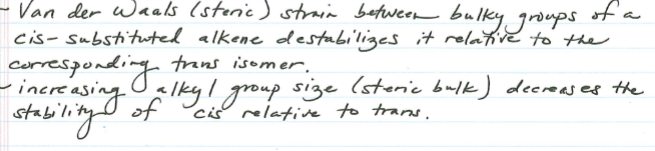 - Van der Waals (steric) strain between bulky groups of a
cis-substituted alkene destabilizes it relative to the
corresponding trans isomer.
- increasing alkyl group size (steric bulk) decreases the
stability of cis relative to trans.